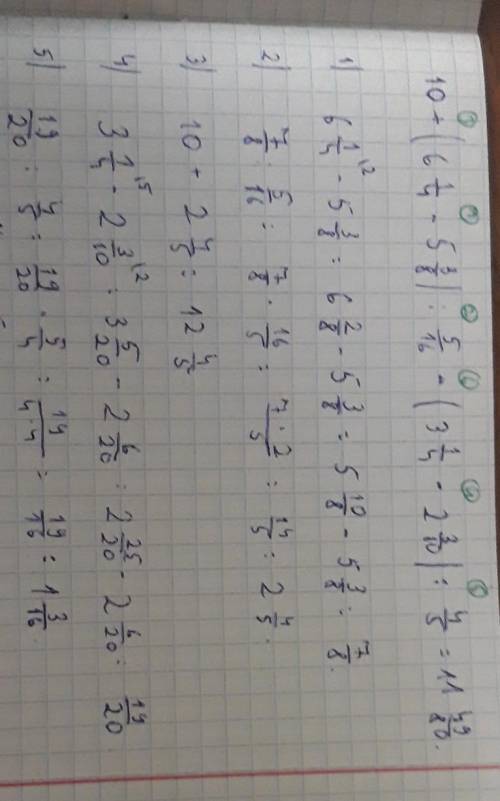 10 + (6 1/4 - 5 3/8) : 5/16 - (3 1/4 - 2 3/10) : 4/5 = 11 49/80.
1) 6 1/4 \2 - 5 3/8 = 6 2/8 - 5 3/8 = 5 10/8 - 5 3/8 = 7/8.
2) 7/8 : 5/16 = 7/8 · 16/5 = 7·2/5 = 14/5 = 2 4/5.
3) 10 + 2 4/5 = 12 4/5
4) 3 1/4 \5 - 2 3/10 \2 = 3 5/20 - 2 6/20 = 2 25/20 - 2 6/20 = 19/20.
5) 19/20 : 4/5 = 19/20 · 5/4 = 19/4·4 = 19/16 = 1 3/16.